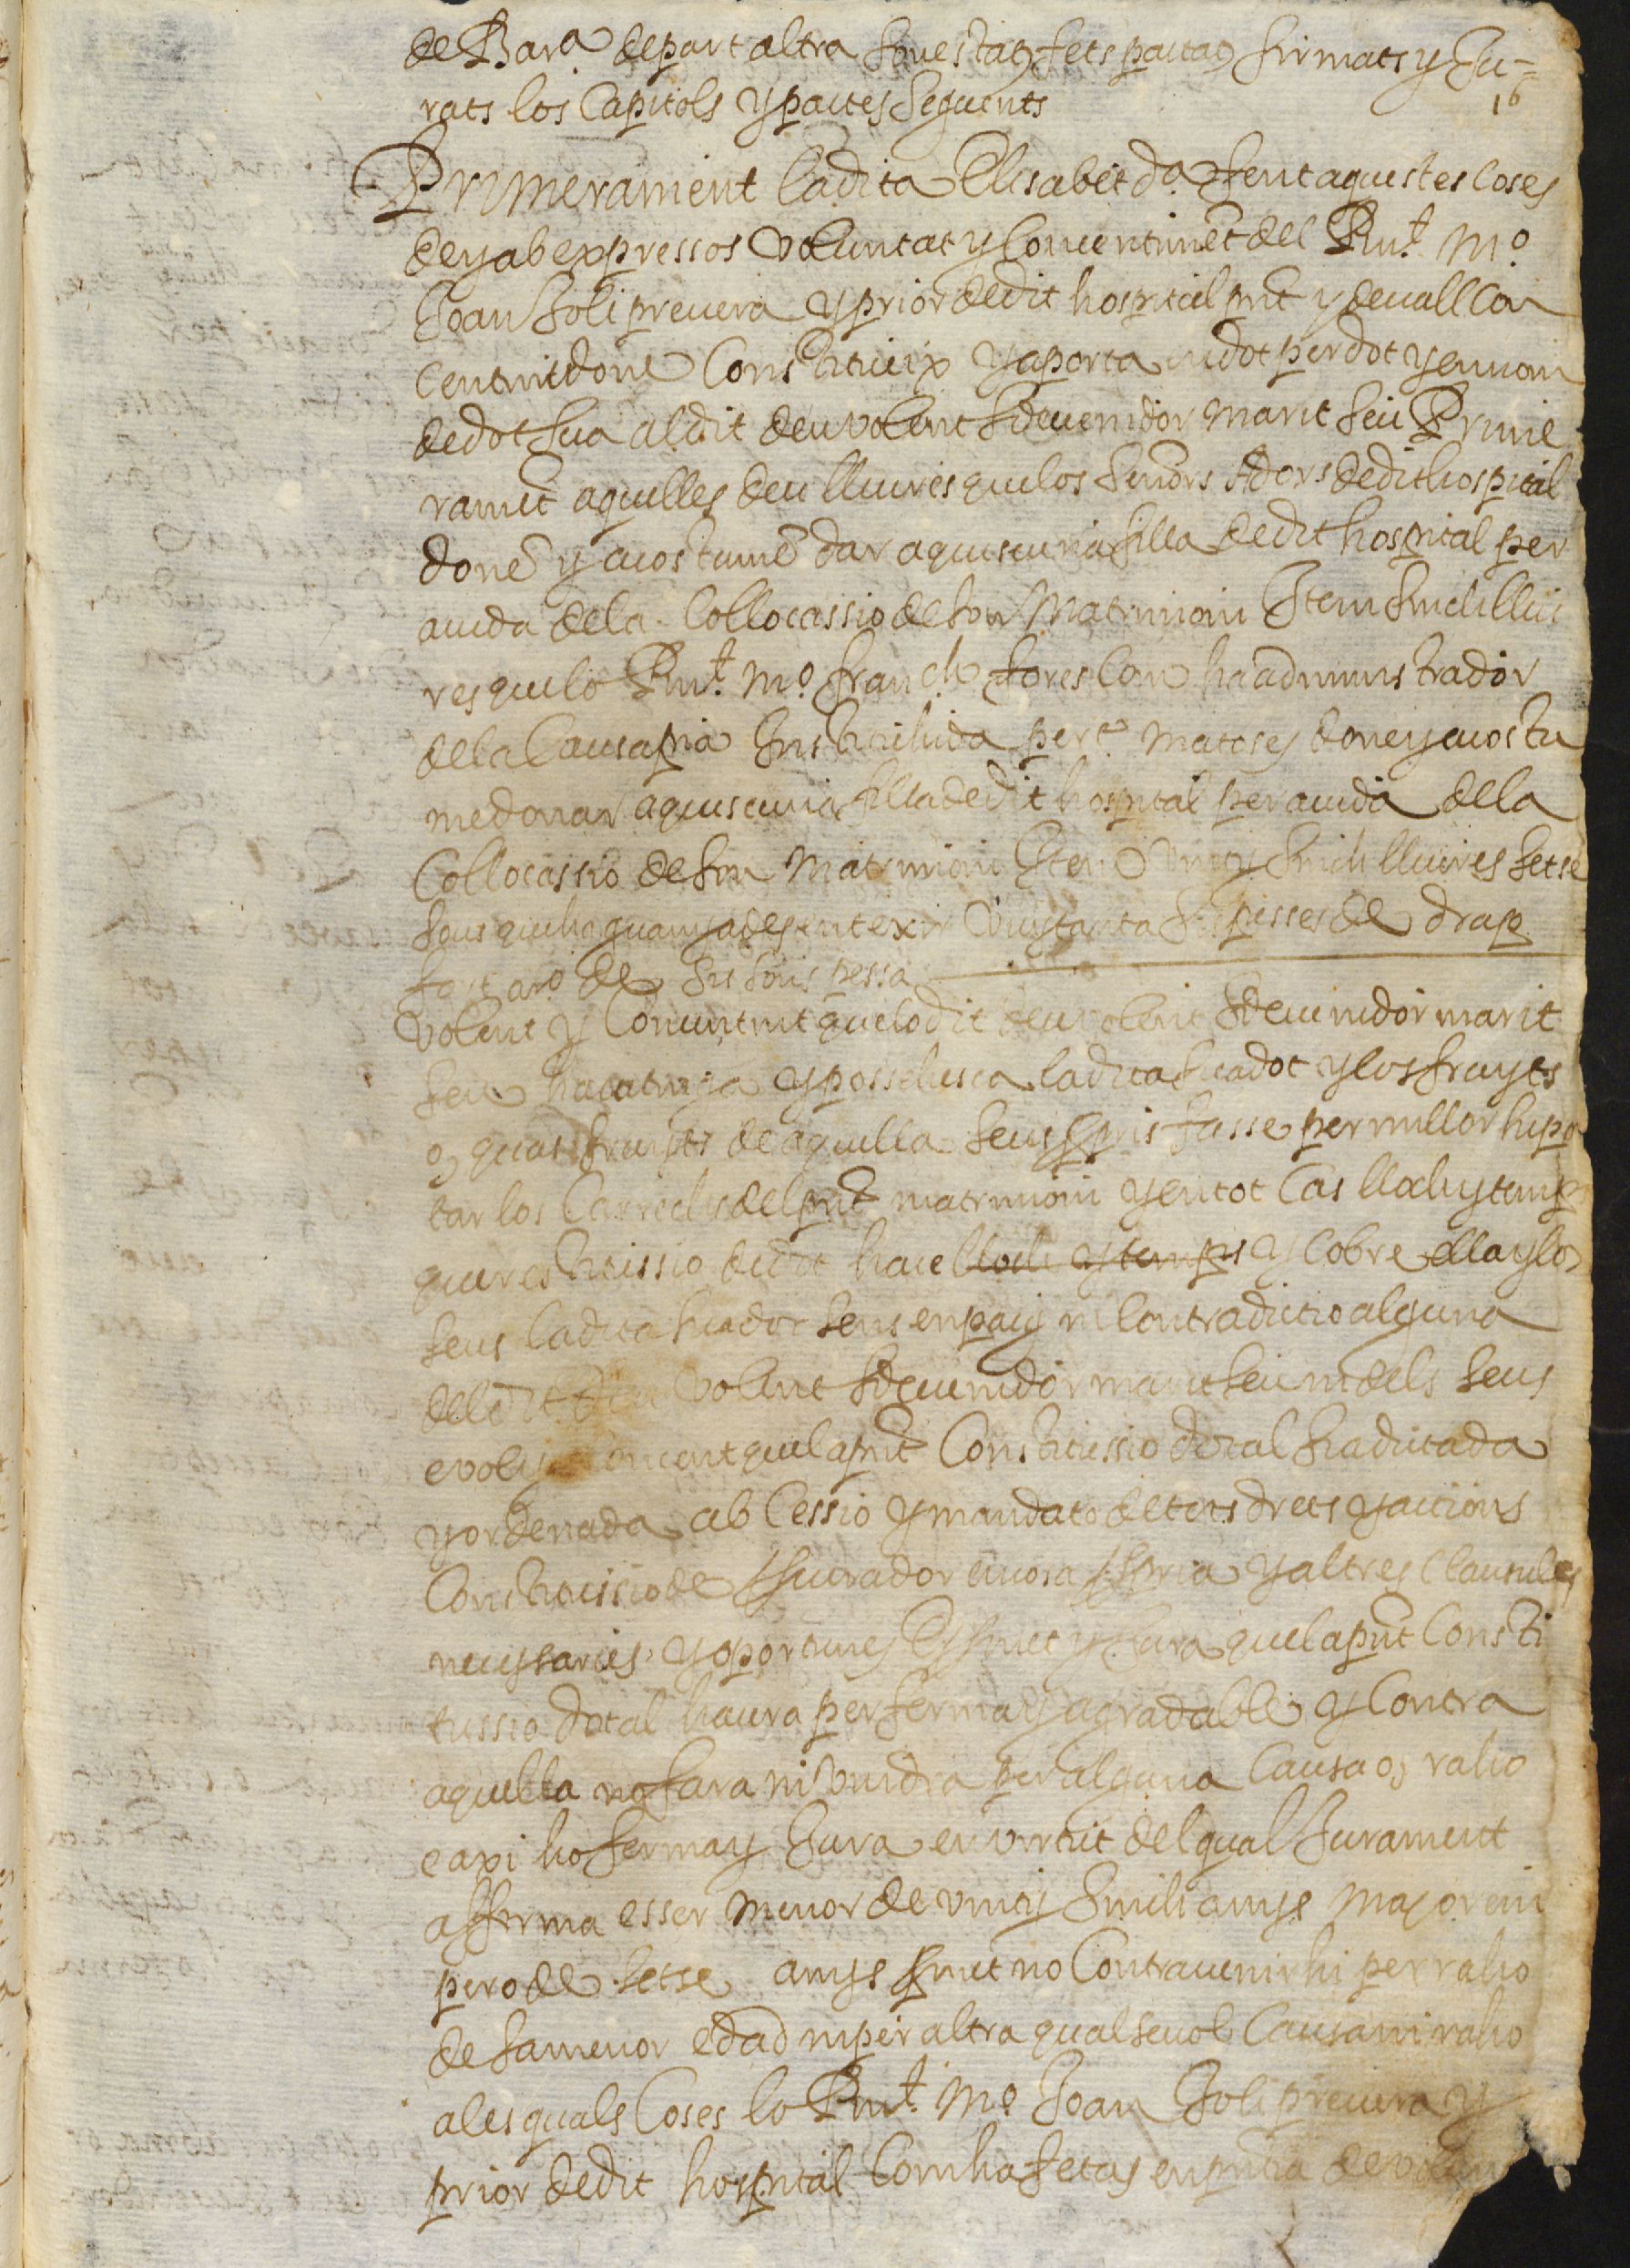 de Bar.a de part altra son estats fets pactats firmats y Ju-
rats los Capitols y pactes seguents
16
Primerament la dita Elisabet d.a fent aquestes coses
de y ab expressos voluntat y Consentimēt del Rnt. Mo
Joan Soli prevera y prior de dit hospital pnt y devall Con
sentint done Constitueix y aporta en dot per dot y en nom
de dot sua al dit deu volent Sdevenidor marit seu Prime
ramēt aquelles deu lliures que los senors Adors de dit hospital
donē y acostumē dar a quiscuna filla de dit hospital per
aiuda de la Collocassio de son Matrimoni Item sinch lliu
res que lo Rnt. Mo. Franch fores Com ha administrador
de la Causa pia Instituhida per Matoses done y acostu
me donar a quiscuna filla de dit hospital per aiuda de la
Collocassio de son Matrimoni Item vint y sinch lliures setse
sous que ha guanyades en texir pesses de drap
de sis sous pessa
Volent y Consentint que lo dit deu volent Sdevenidor marit
seu haia tinga y possehesca la dita sua dot y los fruyts
o, quasi fruyts de aquella seus propris fasse per millor supor
tar los Carrechs del pnt matrimoni y en tot Cas lloch y temps
que restitussio de dot haie lloch y temps y Cobre ella y los
seus la dita sua dot sens enpaig ni Contradictio alguna
del dit deu volent Sdevenidor marit seu ni dels seus
e vol y Consent que la pnt Constitussio dotal sia dictada
y ordenada ab Cessio y mandato de tots drets y actions
Constitussio de procurador en cosa propria y altres Clausules
necessaries y oportunes E promet y Jura que la pnt Consti
tussio dotal haura per ferma y agradable y Contra
aquella no fara ni vindra per alguna Causa o, raho
e axi ho ferma y Jura en virtut del qual Jurament
afferma esser menor de vint y sinch anys major em
pero de setse anys promet no Contravenir hi per raho
de sa menor edad ni per altra qualsevol Causa ni raho
a les quals Coses lo Rnt. Mo. Joan Soli prevera y
prior de dit hospital Com ha fetas en pntia